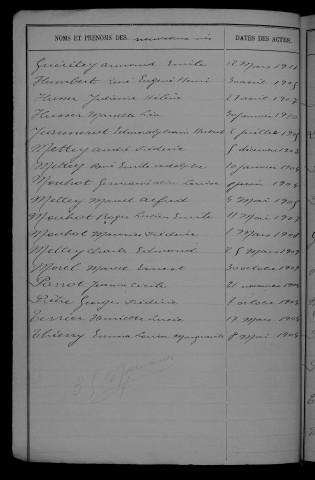 NOMS ET PRÉNOMS DES nouveaux nés DATES DES ACTES
Guériley Armand Emile 12 Mars 1911
Humbert René Eugène Henri 3 avril 1905
Husser Julienne Hélène 27 avril 1907
Husser Marcelle Léa 30 janvier 1910
Jeanneret Edmond 2 juillet
Mettey André Frédéric 5 décembre 1903
Mettey René Emile Adolphe 10 janvier
Mouhot Germaine Louise
Mettey Marcel Alfred 4 Mai 1905
Mouhot Roger Lucien Emile 11 Mai 1907
Mouhot Maurice Frédéric 1 Mars 1908
Mettey Charles Edmond 25 Mars 1909
Morel Marcel Ernest 30 octobre 1909
Parrot Jeanne Cécile 21 novembre
Prêtre Georges Frédéric 1 octobre
Terrier Henriette Lucie 17 Mars
Thierry Emma Louise Marguerite 8 Mai